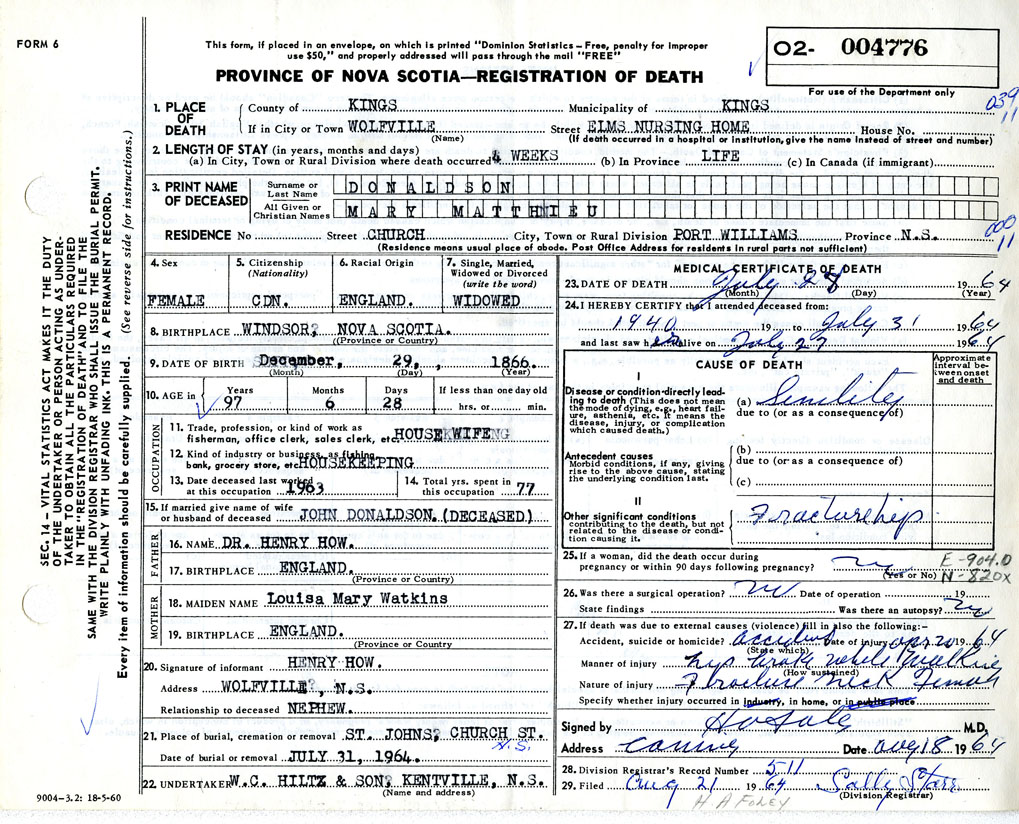 FORM 6
This form, if placed in an envelope, on which is printed "Dominion Statistics—Free, penalty for improper
use $50," and properly addressed will pass through the mail "FREE"
PROVINCE OF NOVA SCOTIA—REGISTRATION OF DEATH
O2- 004776
For use of the Department only
039
11
1. PLACE OF DEATH
County of KINGS Municipality of KINGS
If in City or Town WOLFVILLE Street ELMS NURSING HOME House No.
(Name) (If death occurred in a hospital or institution, give the name instead of street and number)
2. LENGTH OF STAY (in years, months and days)
(a) In City, Town or Rural Division where death occurred WEEKS (b) In Province LIFE (c) In Canada (if immigrant)
3. PRINT NAME OF DECEASED
Surname or Last Name DONALDSON
All Given or Christian Names MARY MATTHIEU
000
11
RESIDENCE No Street CHURCH City, Town or Rural Division PORT WILLIAMS Province N.S.
(Residence means usual place of abode. Post Office Address for residents in rural parts not sufficient)
4. Sex
FEMALE
5. Citizenship (Nationality)
CDN.
6. Racial Origin
ENGLAND.
7. Single, Married, Widowed or Divorced (write the word)
WIDOWED
8. BIRTHPLACE WINDSOR, NOVA SCOTIA.
(Province or Country)
9. DATE OF BIRTH December, 29, 1866.
(Month) (Day) (Year)
10. AGE in
Years 97
Months 6
Days 28
If less than one day old
hrs. or min.
OCCUPATION
11. Trade, profession, or kind of work as
fisherman, office clerk, sales clerk, etc. HOUSEWIFE
12. Kind of industry or business, as fishing,
bank, grocery store, etc. HOUSEKEEPING
13. Date deceased last worked
at this occupation 1963
14. Total yrs. spent in
this occupation 77
15. If married give name of wife
or husband of deceased JOHN DONALDSON. (DECEASED)
FATHER
16. NAME DR. HENRY HOW.
17. BIRTHPLACE ENGLAND.
(Province or Country)
MOTHER
18. MAIDEN NAME Louisa Mary Watkins
19. BIRTHPLACE ENGLAND.
(Province or Country)
20. Signature of informant HENRY HOW.
Address WOLFVILLE, N.S.
Relationship to deceased NEPHEW.
21. Place of burial, cremation or removal ST. JOHNS, CHURCH ST.
N.S.
Date of burial or removal JULY 31, 1964.
22. UNDERTAKER W.C. HILTZ & SON, KENTVILLE, N.S.
(Name and address)
MEDICAL CERTIFICATE OF DEATH
23. DATE OF DEATH July 28 1964
(Month) (Day) (Year)
24. I HEREBY CERTIFY that I attended deceased from:
1940 19 to July 31 1964
and last saw her alive on July 27 1964
CAUSE OF DEATH
Approximate interval between onset and death
I
Disease or condition directly leading
to death (This does not mean
the mode of dying, e.g., heart failure,
asthenia, etc. It means the
disease, injury, or complication
which caused death.)
(a) Senility
due to (or as a consequence of)
Antecedent causes
Morbid conditions, if any, giving
rise to the above cause, stating
the underlying condition last.
(b)
due to (or as a consequence of)
(c)
II
Other significant conditions
contributing to the death, but not
related to the disease or condition
causing it.
Fracture hip
25. If a woman, did the death occur during
pregnancy or within 90 days following pregnancy? no
(Yes or No)
E-904.0
N-820X
26. Was there a surgical operation? no Date of operation 19
State findings Was there an autopsy? no
27. If death was due to external causes (violence) fill in also the following:-
Accident, suicide or homicide? accident Date of injury apr 20 1964
(State which)
Manner of injury hip broke while walking
(How sustained)
Nature of injury Fracture neck Femur
Specify whether injury occurred in industry, in home, or in public place
Signed by M.D.
Address Canning Date aug 18 1964
28. Division Registrar's Record Number 511
29. Filed Aug 21 1964 Sally Starr
(Division Registrar)
H A FOLEY
9004-3.2: 18-5-60
SEC. 14—VITAL STATISTICS ACT MAKES IT THE DUTY
OF THE UNDERTAKER OR PERSON ACTING AS UNDERTAKER
TO OBTAIN ALL THE PARTICULARS REQUIRED
IN THE "REGISTRATION OF DEATH" AND TO FILE THE
SAME WITH THE DIVISION REGISTRAR WHO SHALL ISSUE THE BURIAL PERMIT.
WRITE PLAINLY WITH UNFADING INK. THIS IS A PERMANENT RECORD.
Every item of information should be carefully supplied. (See reverse side for instructions.)